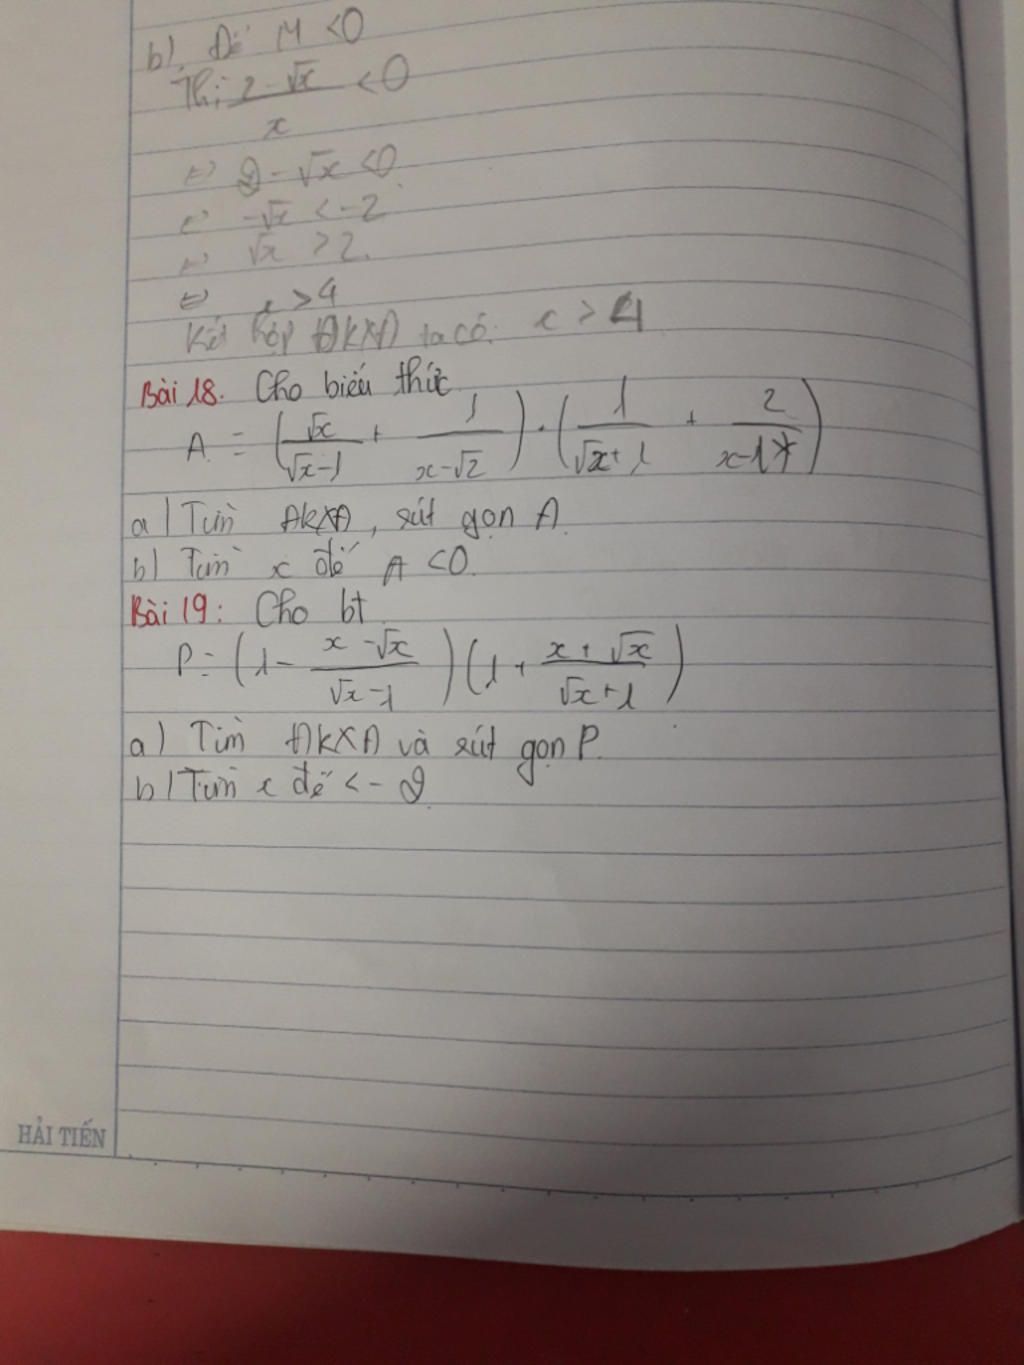 b). Để M < 0
Thì (2 - √x)/x < 0
⇔ 2 - √x < 0
⇔ -√x < -2
⇔ √x > 2.
⇔ x > 4
Kết hợp ĐKXĐ ta có: x > 4
Bài 18. Cho biểu thức
A = (√x/(√x-1) + 1/(x-√2)) · (1/(√x+1) + 2/(x-1))
a) Tìm ĐKXĐ, rút gọn A.
b) Tìm x để A < 0
Bài 19: Cho bt
P = (1 - (x-√x)/(√x-1)) (1 + (x+√x)/(√x+1))
a) Tìm ĐKXĐ và rút gọn P.
b) Tìm x để < - 2
HẢI TIẾN